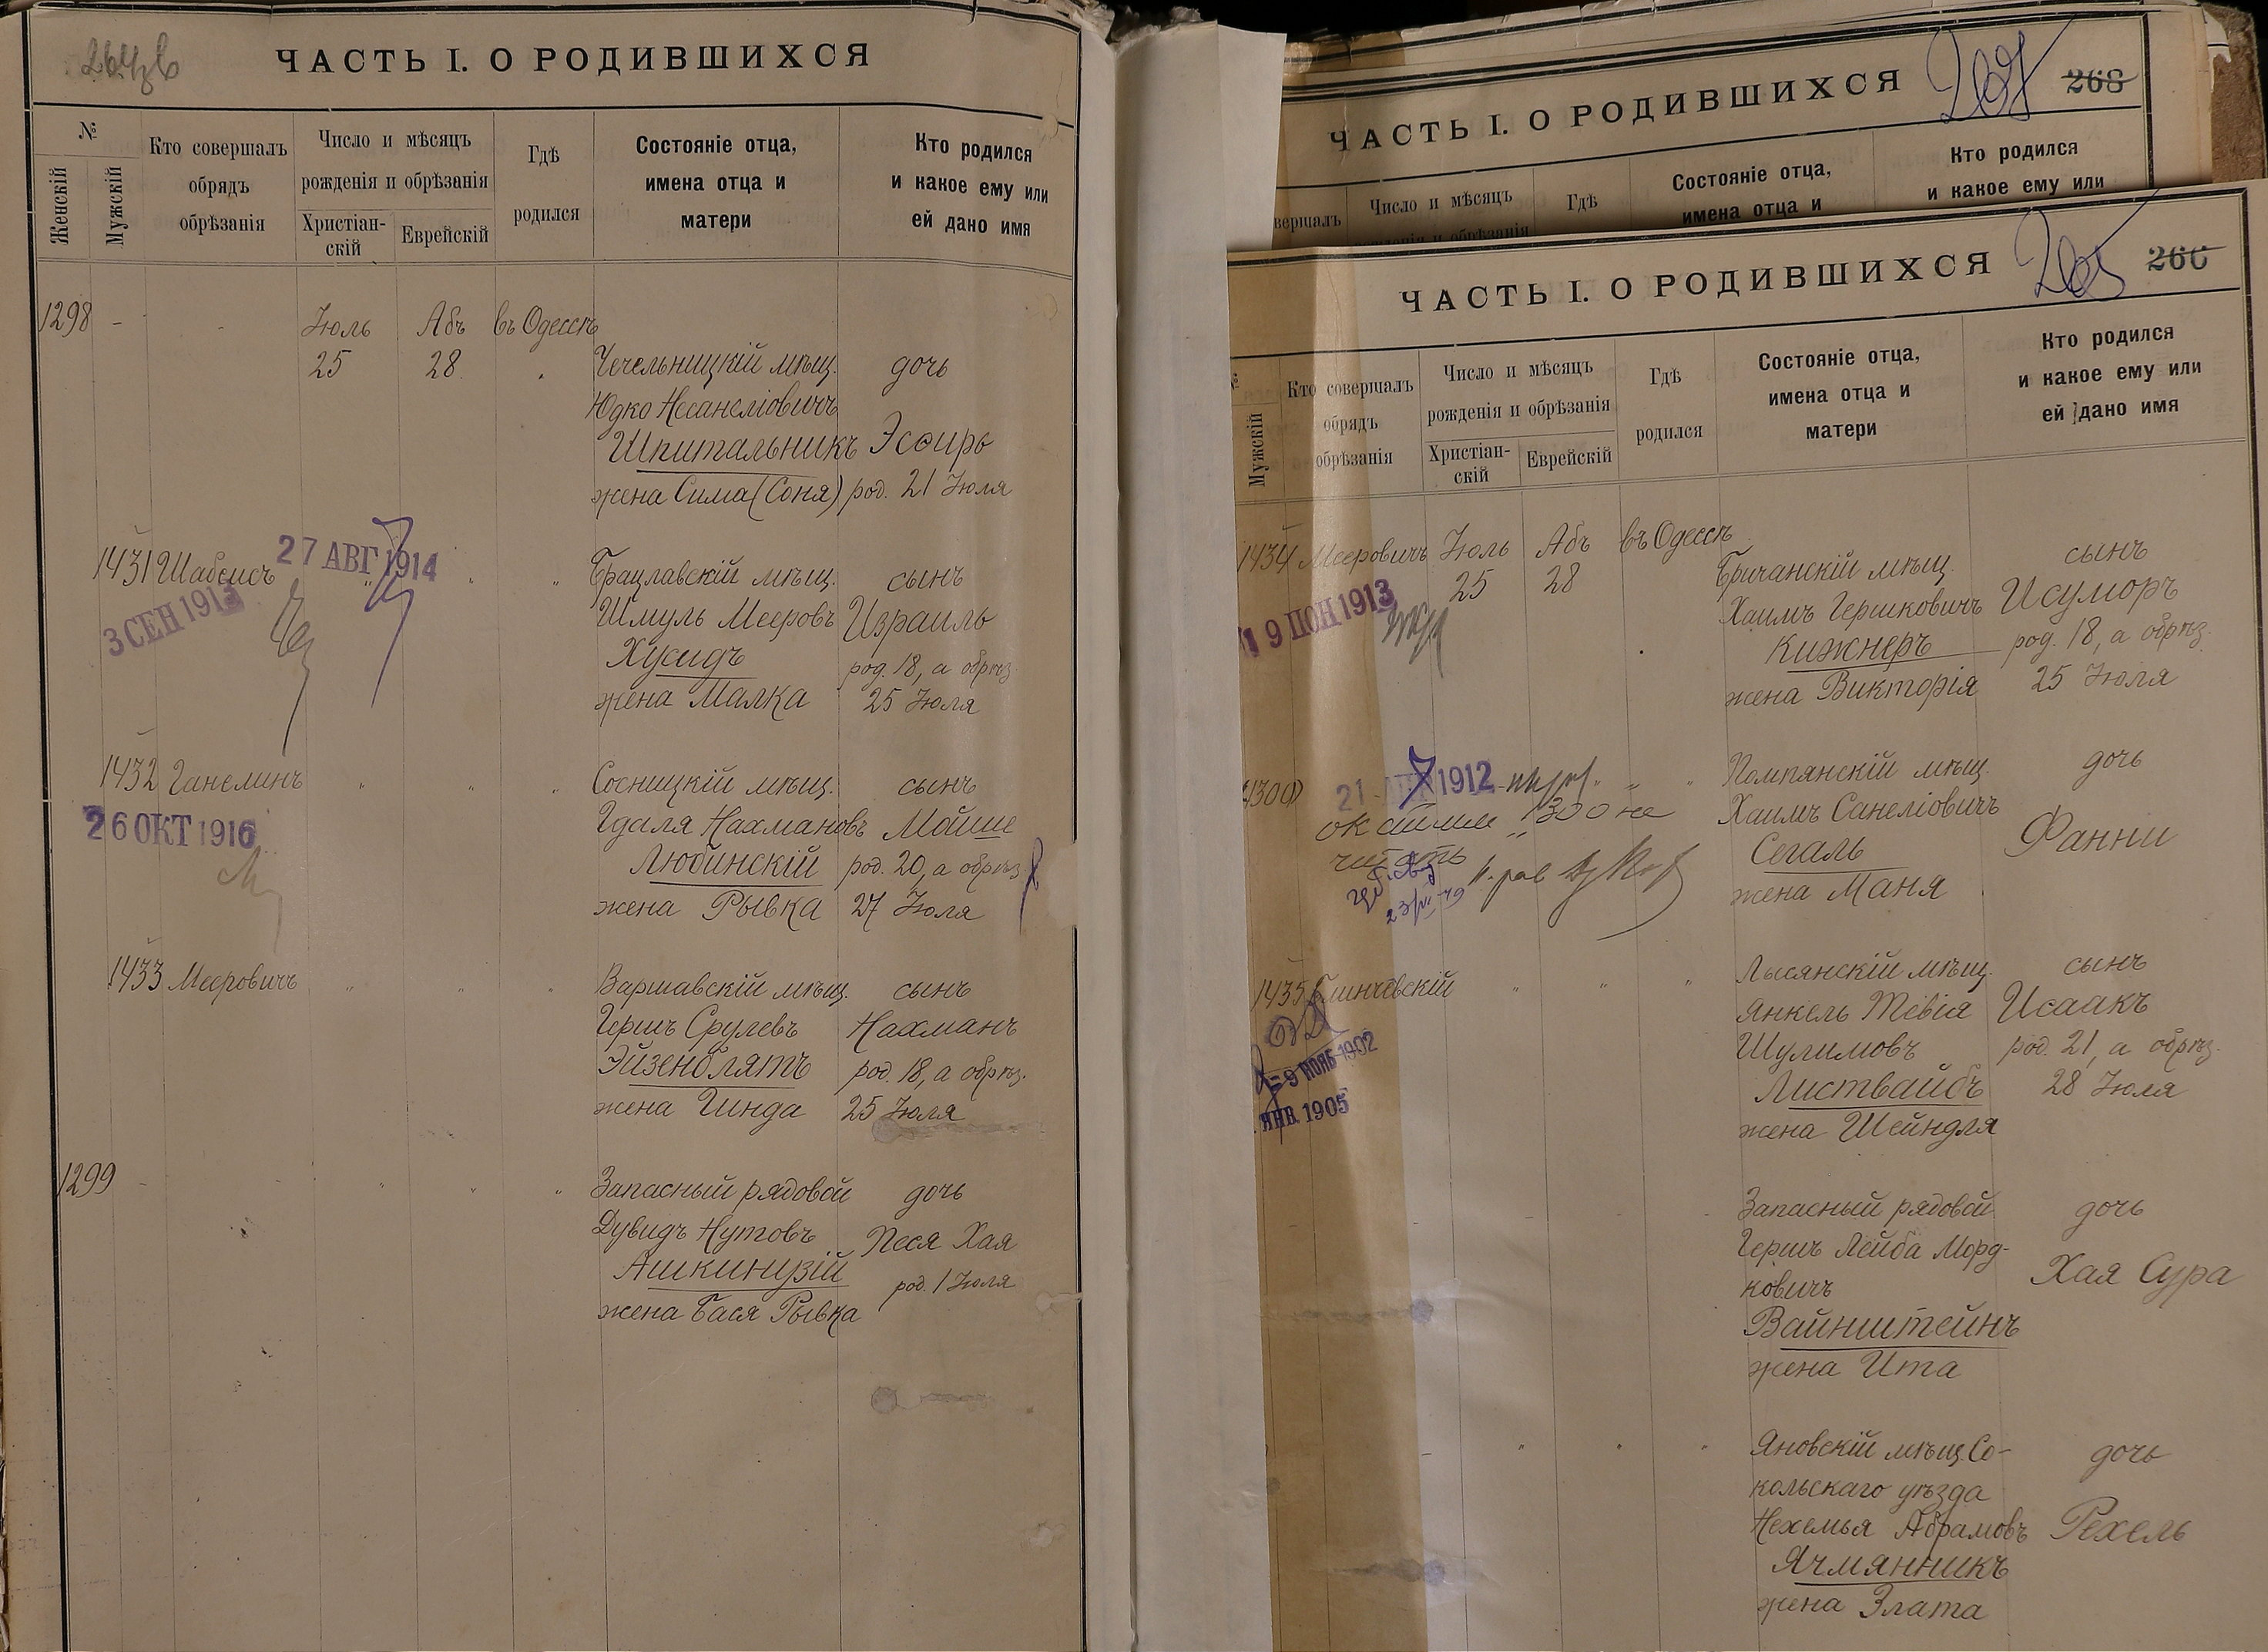 ЧАСТЬ I. О РОДИВШИХСЯ
№
Женскій
Мужскій
Кто совершалъ
обрядъ
обрѣзанія
Число и мѣсяцъ
рожденія и обрѣзанія
Христіан-
скій
Еврейскій
Гдѣ
родился
Состояніе отца,
имена отца и
матери
Кто родился
и какое ему или
ей дано имя
1298 - - Іюль Абъ въ Одессѣ
25 28
Чечельницкій мѣщ. дочь
Юдко Несанеліовичъ
Шпитальникъ Эсѳирь
жена Сима (Соня) род. 21 Іюля
1431 Шабсисъ 27 АВГ 1914
3 СЕН 1913
Брацлавскій мѣщ. сынъ
Шмуль Мееровъ Израиль
Хусидъ род. 18, а обрѣз.
жена Малка 25 Іюля
1432 Ганелинъ " " "
26 ОКТ 1916
Сосницкій мѣщ. сынъ
Гдаля Нахмановъ Мойше
Любинскій род. 20, а обрѣз.
жена Рывка 27 Іюля
1433 Мееровичъ " " "
Варшавскій мѣщ. сынъ
Гершъ Срулевъ Нахманъ
Эйзенблятъ род. 18, а обрѣз.
жена Гинда 25 Іюля
1299 - - " " "
Запасный рядовой дочь
Дувидъ Нутовъ Песя Хая
Ашкинузій род. 1 Іюля
жена Бася Рывка
ЧАСТЬ I. О РОДИВШИХСЯ 268
Число и мѣсяцъ
Гдѣ
Состояніе отца,
имена отца и
Кто родился
и какое ему или
ЧАСТЬ I. О РОДИВШИХСЯ 265 266
№
Мужскій
Кто совершалъ
обрядъ
обрѣзанія
Число и мѣсяцъ
рожденія и обрѣзанія
Христіан-
скій
Еврейскій
Гдѣ
родился
Состояніе отца,
имена отца и
матери
Кто родился
и какое ему или
ей дано имя
1434 Мееровичъ Іюль Абъ въ Одессѣ
25 28
19 1913
Бричанскій мѣщ. сынъ
Хаимъ Гершковичъ Исуморъ
Кижнеръ род. 18, а обрѣз.
жена Викторія 25 Іюля
1300 21 1912 " " "
1300 не
читать
Помпянскій мѣщ. дочь
Хаимъ Санеліовичъ
Сегаль Фанни
жена Маня
1435 " " "
9 НОЯБ 1902
ЯНВ. 1905
Лысянскій мѣщ. сынъ
Янкель Тевія Исаакъ
Шулимовъ род. 21, а обрѣз.
Листвайбъ 28 Іюля
жена Шейндля
Запасный рядовой дочь
Гершъ Лейба Морд-
ковичъ Хая Сура
Вайнштейнъ
жена Ита
" " "
Яновскій мѣщ. Со- дочь
кольскаго уѣзда
Нехемья Абрамовъ Рехель
Ячмянникъ
жена Злата